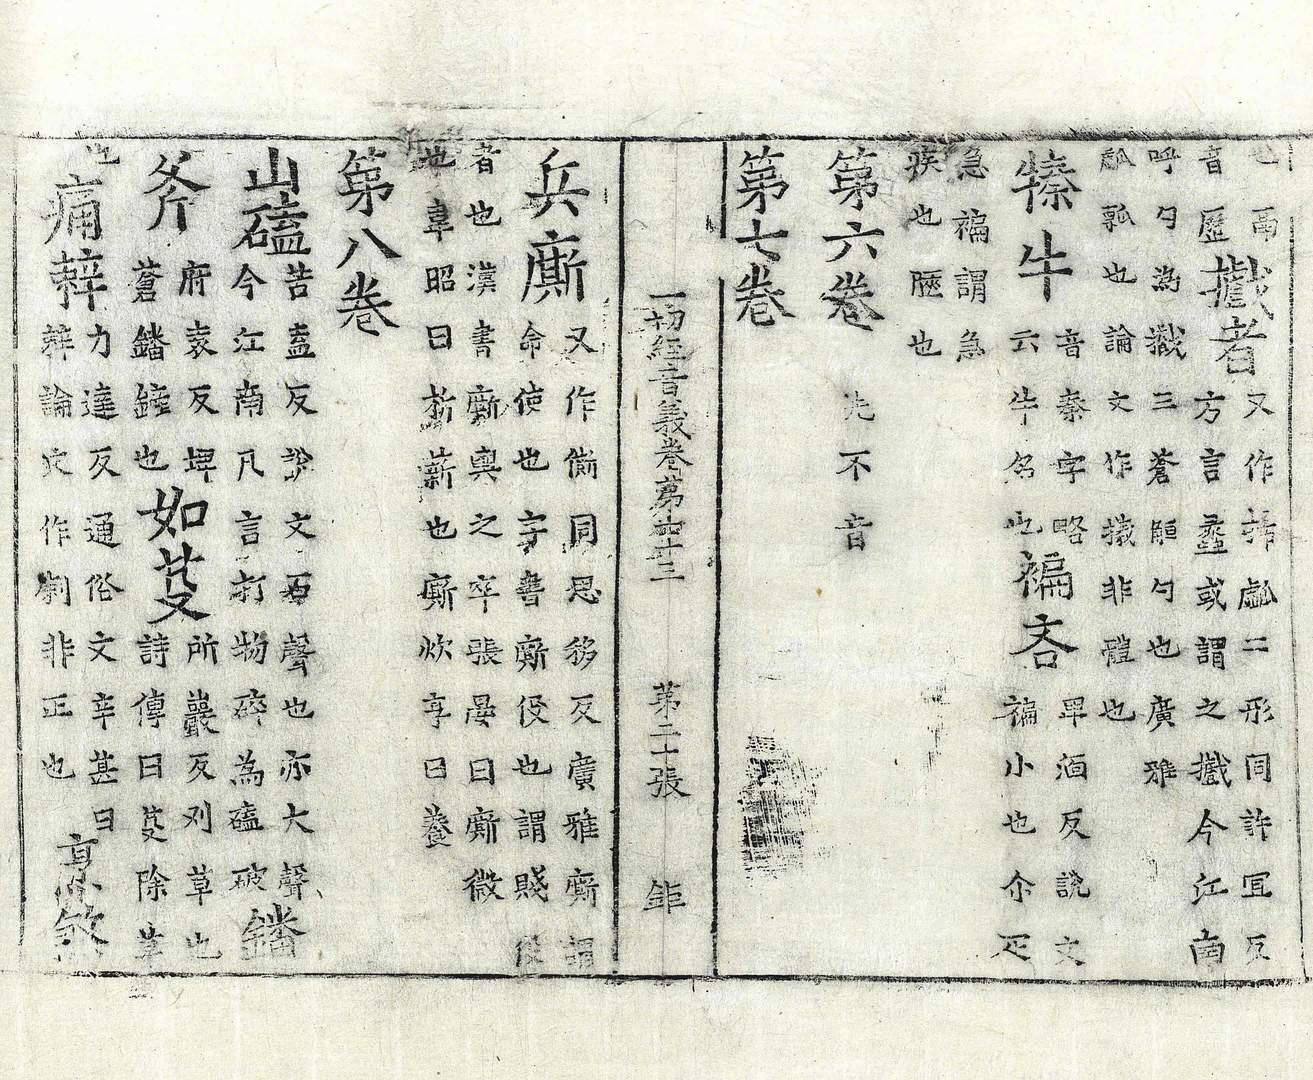 也鬲
音歷
㩲者
又作㧾二形同許冝反
方言蠡或謂之㩲今江南
呼勺為㩲三蒼勺也廣雅
瓠瓢也論文作㩲非體也
㸢牛
音秦字略
云牛名也
褊吝
畀湎反說文
褊小也亦疋
急褊謂急
疾也陿也
第六卷 先不音
第七卷
一切經音義卷苐四十三 苐二十張 鉅
兵廝
又作同思移反廣雅廝謂
命使也字書廝役也謂賤役
者也漢書廝輿之卒張晏曰廝微
也韋昭曰析薪也廝炊亨曰養
第八卷
山磕
苦盍反說文石聲也亦大聲
今江南凡言打物碎為磕破
鐇
斧
府袁反埤
蒼鐇鏟也
如芟
所巖反刈草也
詩傳曰芟除草
也
痛辢
力達反通俗文辛甚曰
辢論文作剌非正也